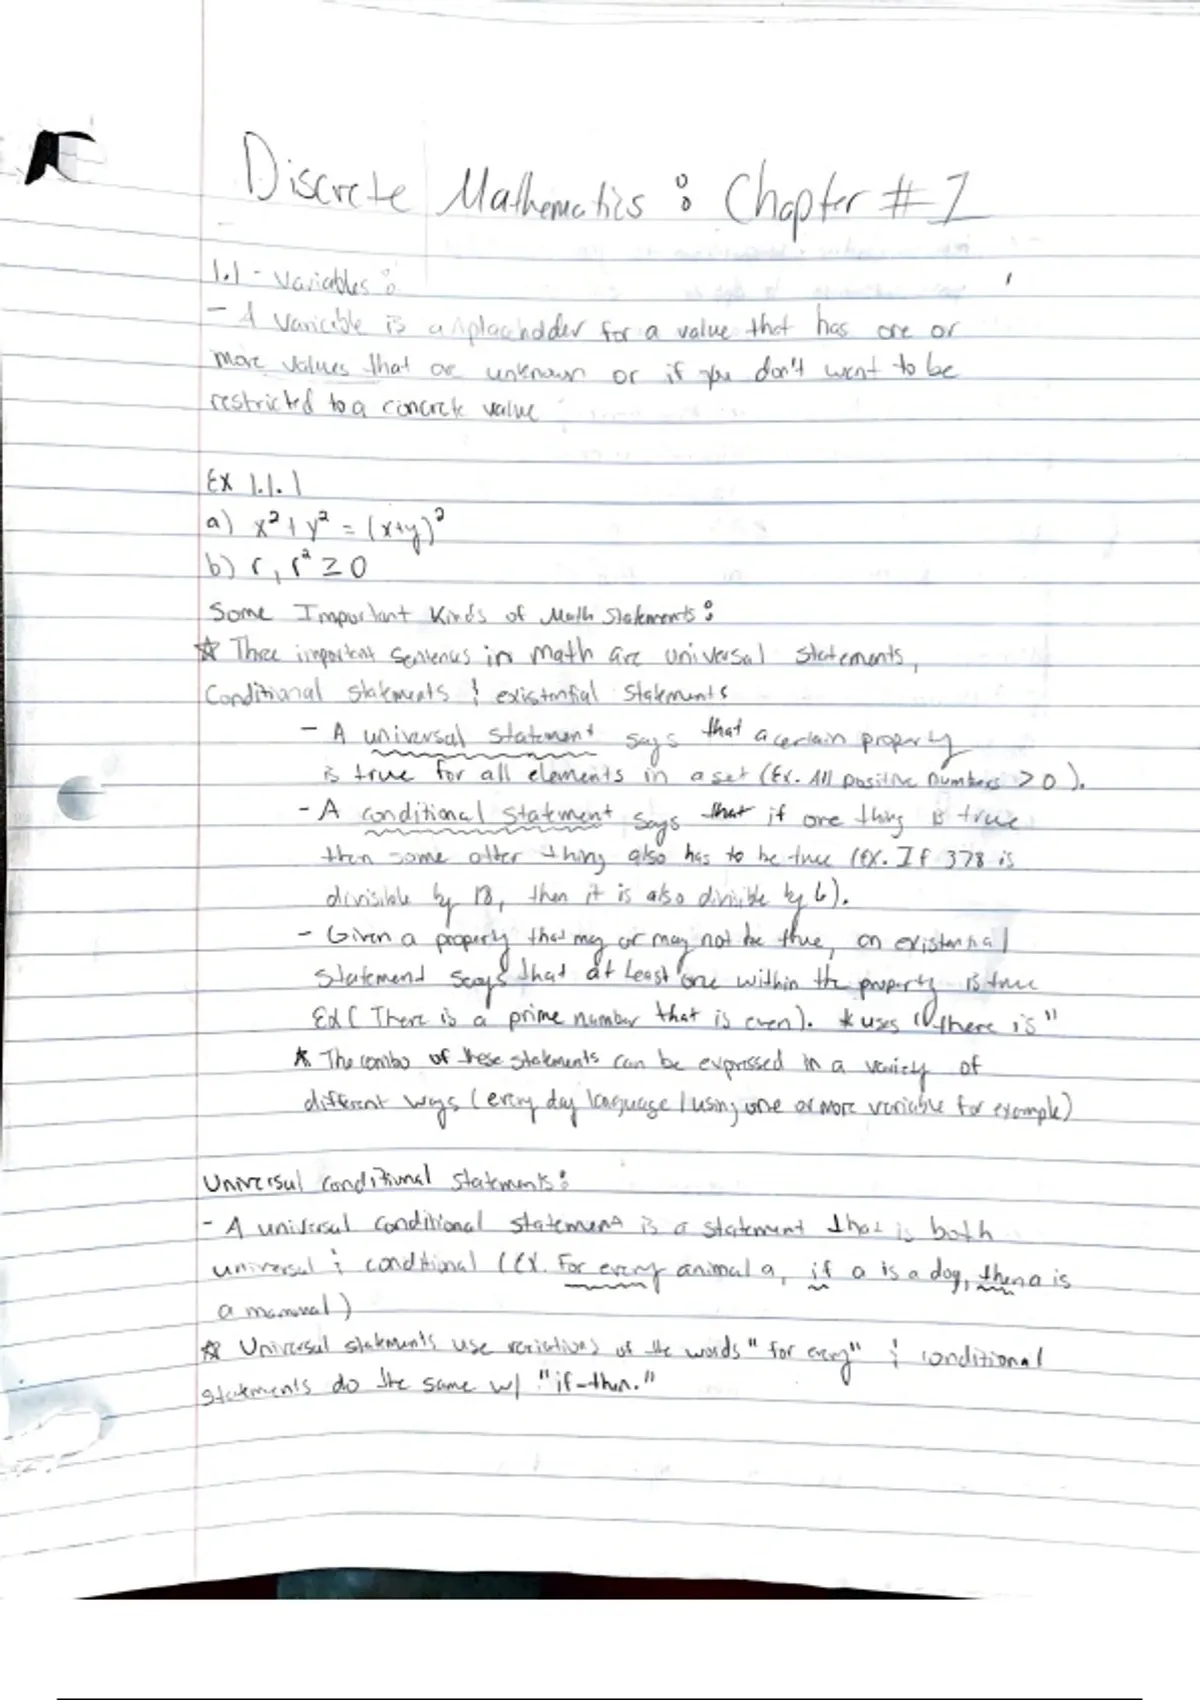 Discrete Mathematics: Chapter #1
1.1 - Variables:
- A variable is a placeholder for a value that has one or
more values that are unknown or if you don't want to be
restricted to a concrete value
Ex 1.1.1
a) x² + y² = (x+y)²
b) r, r² ≥ 0
Some Important Kinds of Math Statements:
☆ Three important sentences in math are universal statements,
Conditional statements & existential statements
- A universal statement says that a certain property
is true for all elements in a set (Ex. All positive numbers > 0).
- A conditional statement says that if one thing is true
then some other thing also has to be true (Ex. If 378 is
divisible by 18, then it is also divisible by 6).
- Given a property that may or may not be true, an existential
statement says that at least one within the property is true
Ex ( There is a prime number that is even). * uses "there is"
* The combo of these statements can be expressed in a variety of
different ways (every day language / using one or more variable for example)
Universal conditional statements:
- A universal conditional statement is a statement that is both
universal & conditional (Ex. For every animal a, if a is a dog, then a is
a mammal)
☆ Universal statements use variations of the words "for every" & conditional
statements do the same w/ "if-then."